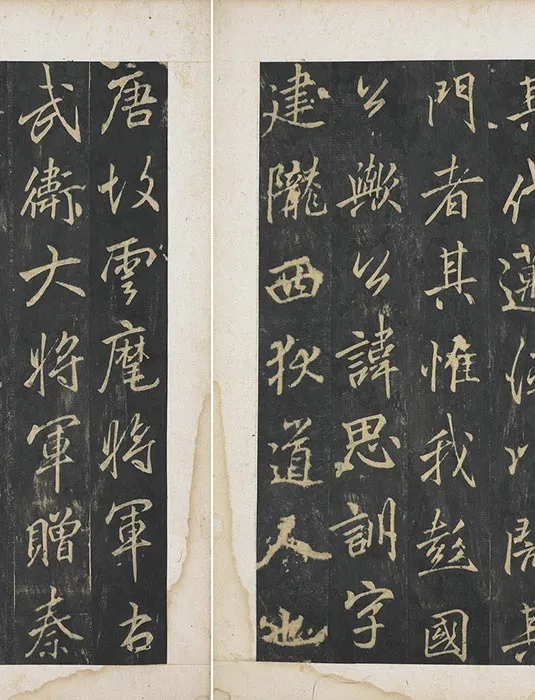 其代邁以其
門者其惟我彭國
公歟公諱思訓字
建隴西狄道人也
唐故雲麾將軍右
武衛大將軍贈秦